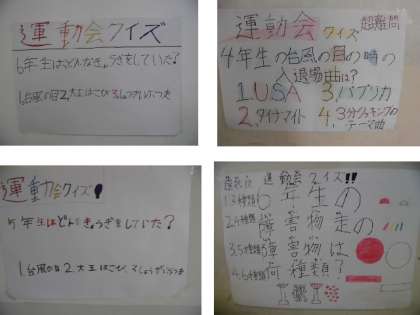 運動会クイズ
6年生はどんなきょうぎをしていた?
1.台風の目 2.大玉はこび 3.しょうがいぶつ走
運動会クイズ 超難問
4年生の台風の目の時の
入退場曲は?
1.USA 3.パプリカ
2.ダイナマイト 4.3分クッキングの
テーマ曲
運動会クイズ!
5年生はどんなきょうぎをしていた?
1台風の目 2.大玉はこび 3しょうがいぶつ走
運動会クイズ!!
1.3種類 6年生の
2.4種類 障害物走の
3.5種類 障害物は
4.6種類 何種類?